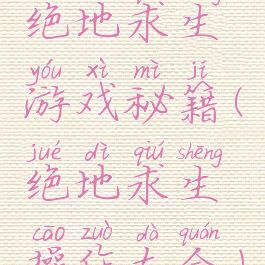 绝地求生
yóu xì mì jí
游戏秘籍(
jué dì qiú shēng
绝地求生
cāo zuò dà quán
操作大全)